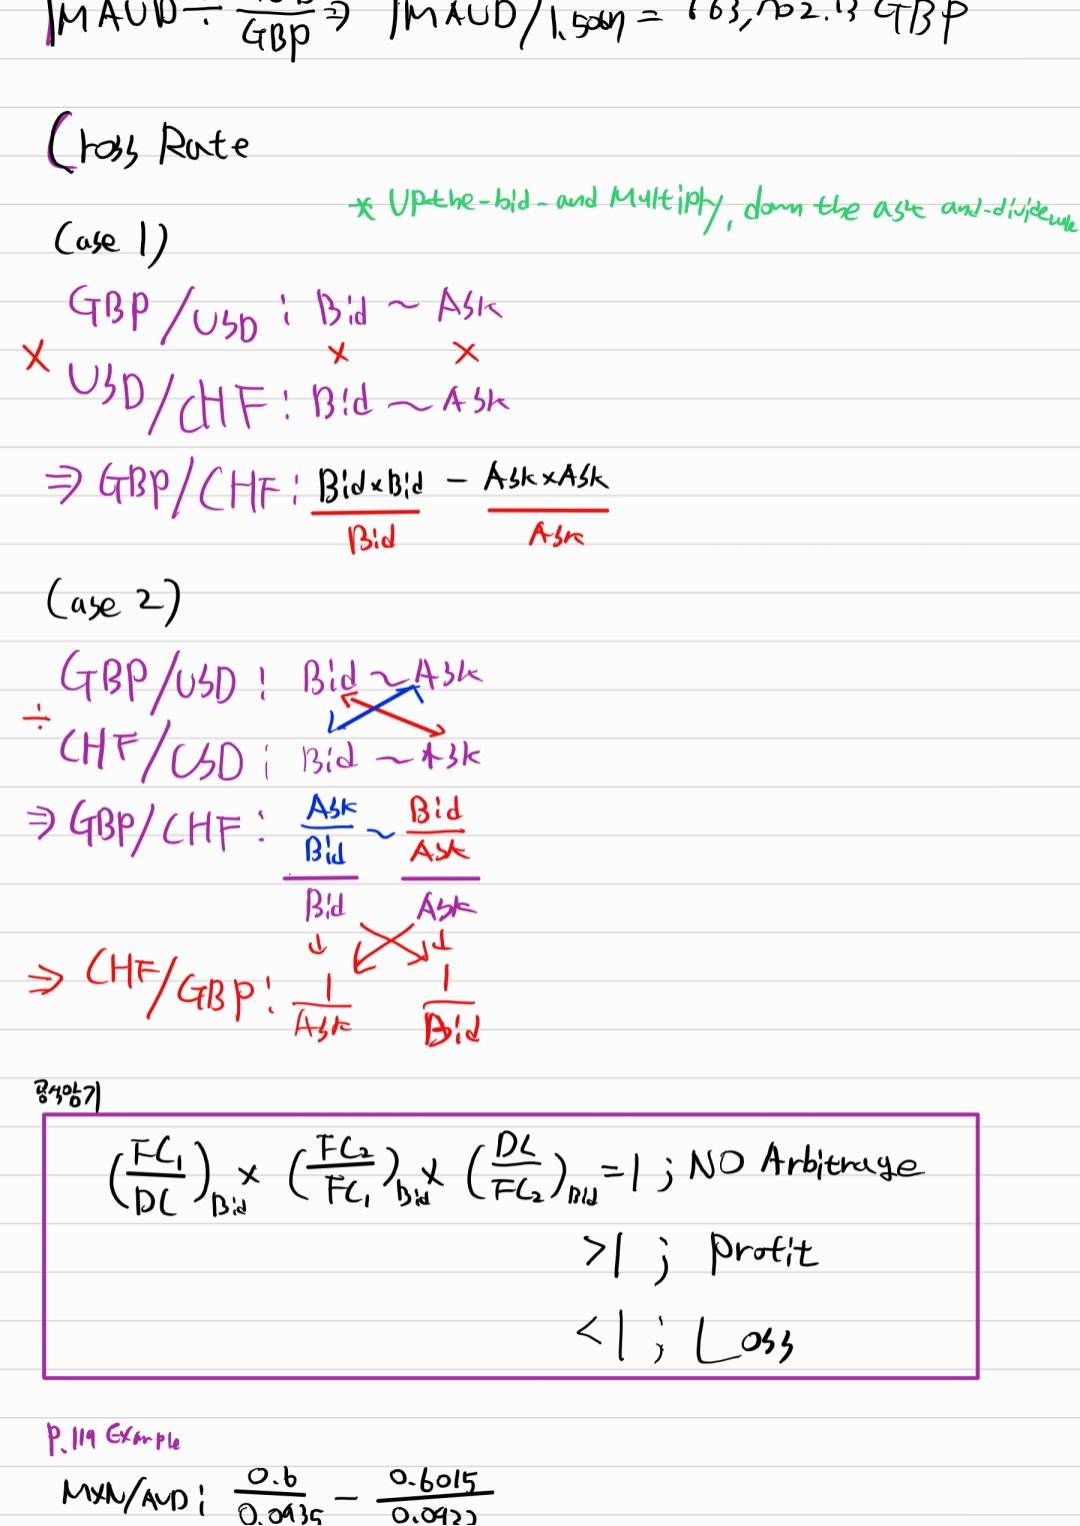 1MAUD ÷ /GBP ⇒ 1MAUD/1. = GBP
Cross Rate
* Up-the-bid-and Multiply, down the ask and-divide rule
Case 1)
GBP/USD : Bid ~ Ask
× × ×
USD/CHF : Bid ~ Ask
⇒ GBP/CHF : Bid×Bid - Ask×Ask
Bid Ask
Case 2)
GBP/USD : Bid ~ Ask
÷
CHF/USD : Bid ~ Ask
⇒ GBP/CHF : Ask/Bid ~ Bid/Ask
Bid Ask
⇒ CHF/GBP : 1/Ask 1/Bid
공식암기
(FC₁/DC)Bid × (FC₂/FC₁)Bid × (DC/FC₂)Bid = 1 ; NO Arbitrage
>1 ; Profit
<1 ; Loss
P.119 Example
MXN/AUD : 0.6/0.0935 - 0.6015/